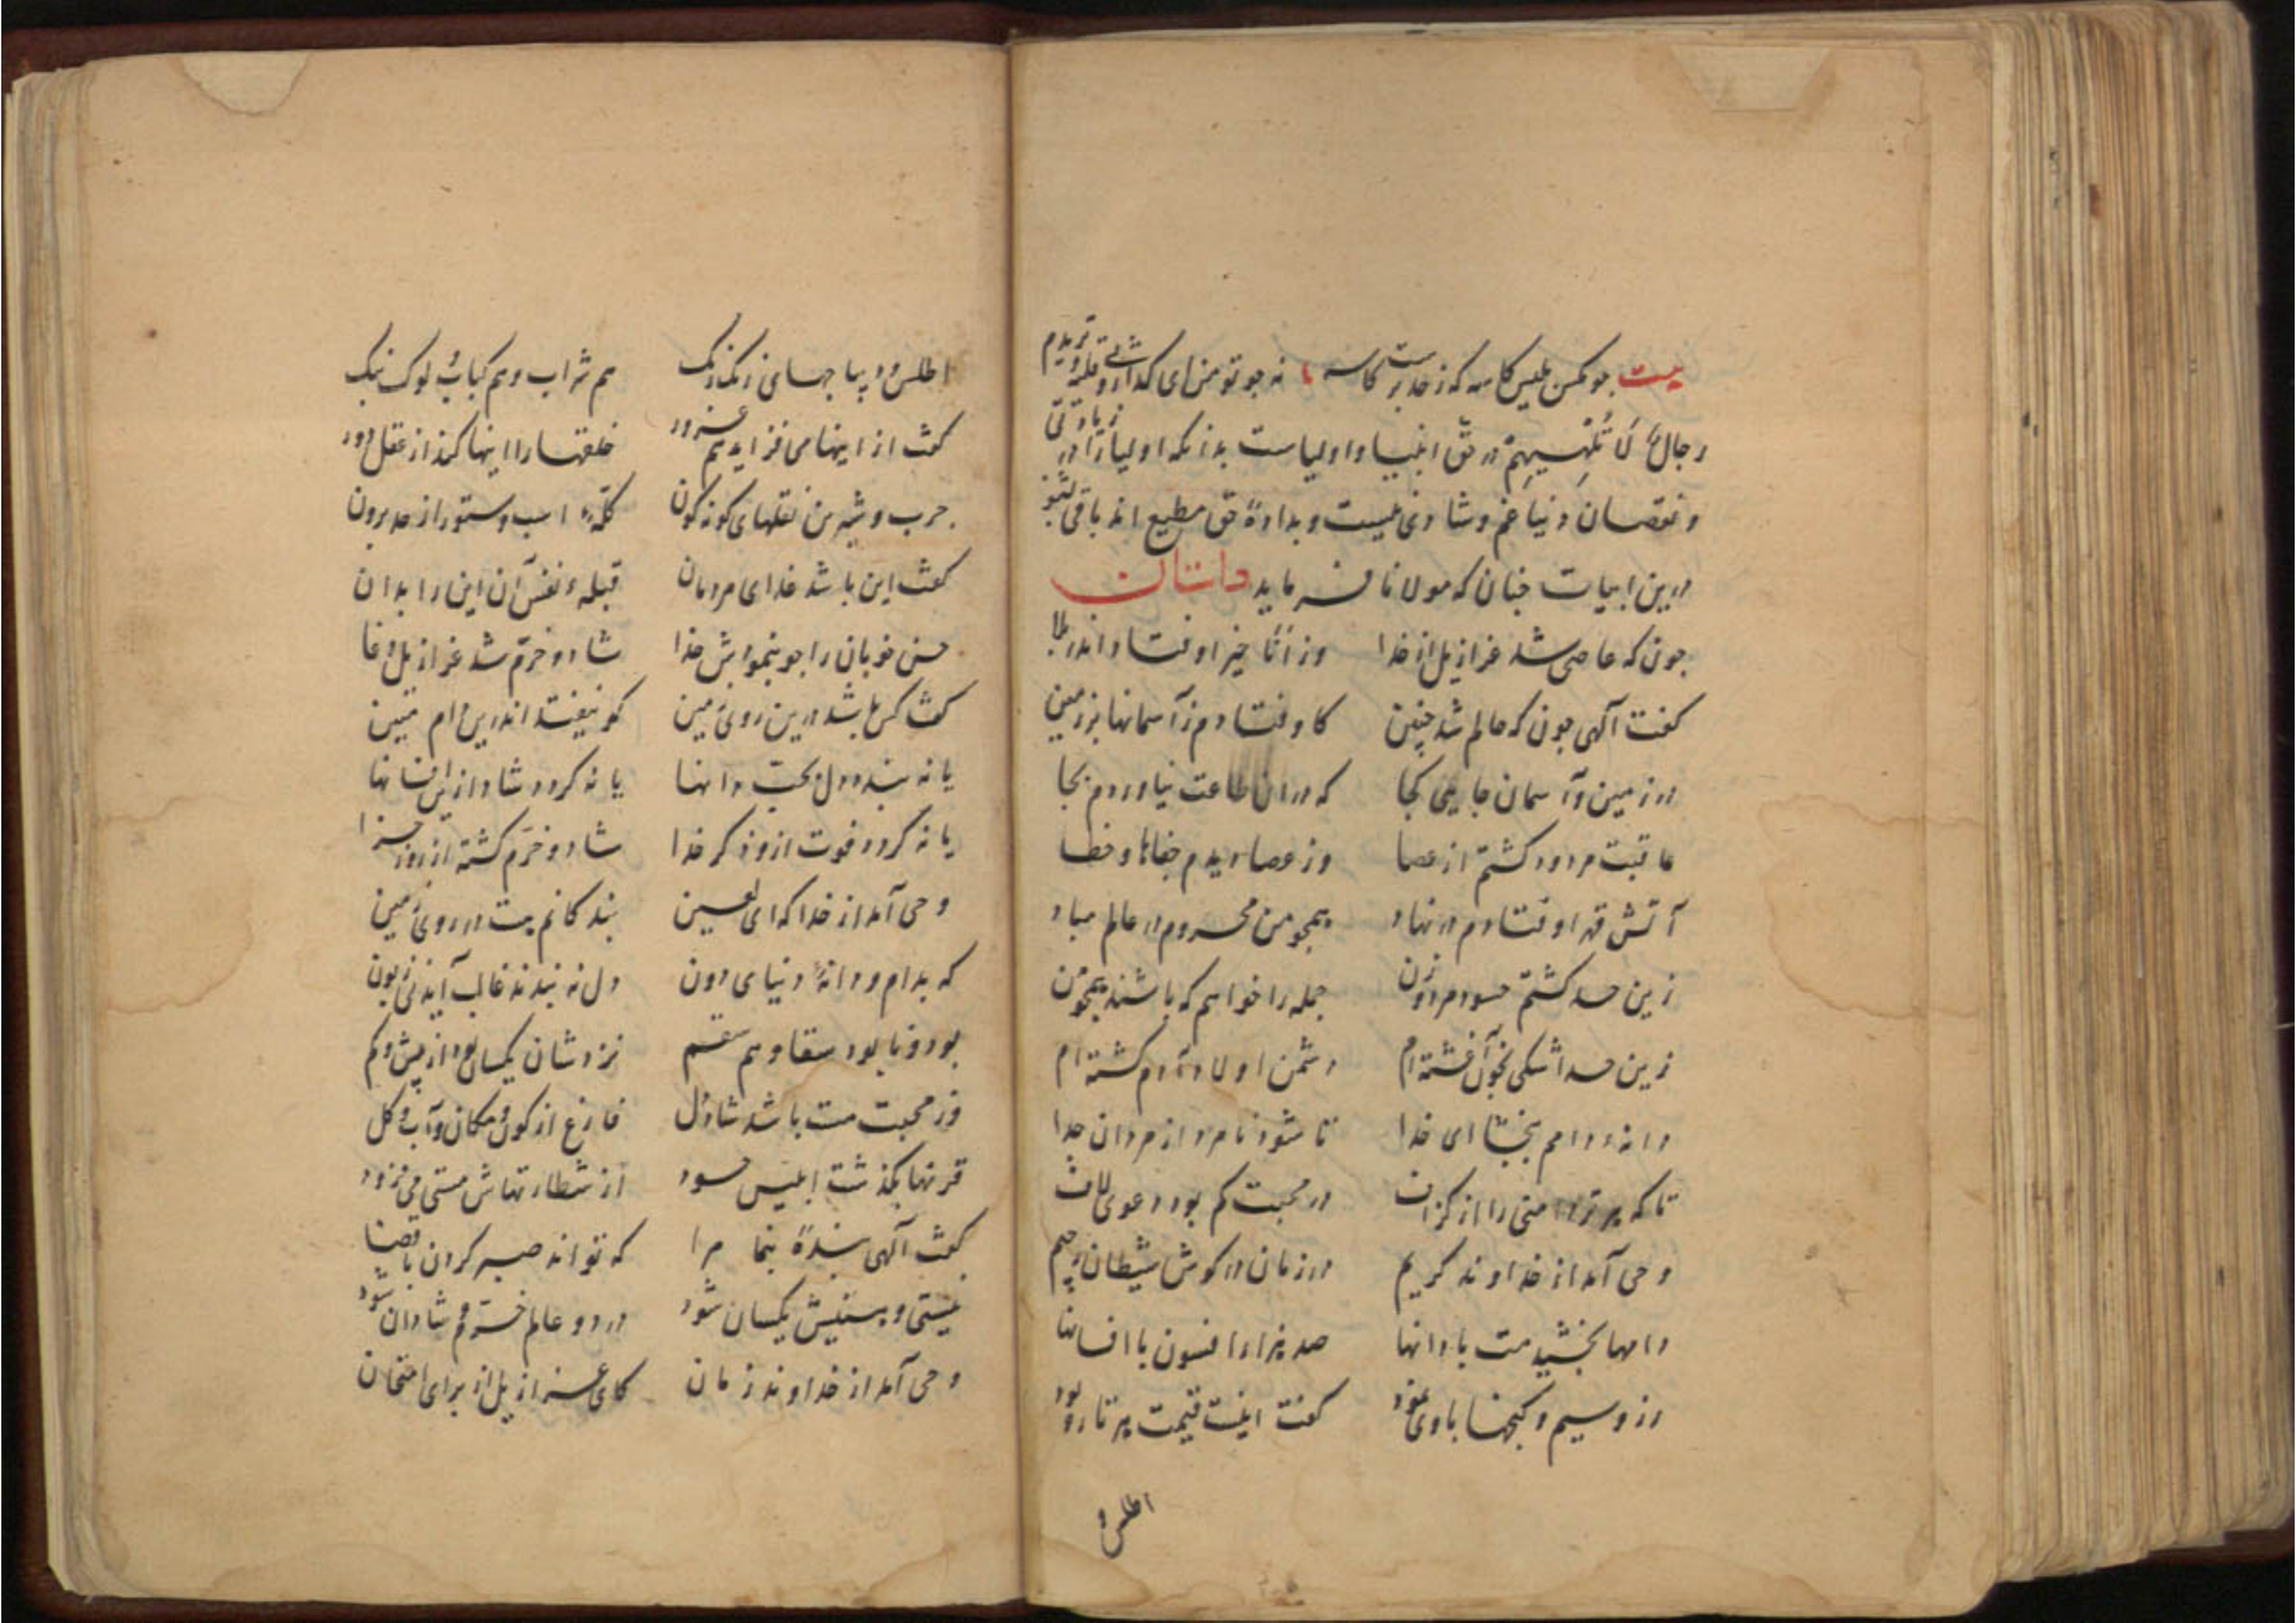 بیت چو مگس بلیس کاسه که ز حد برست کاسه نه چو تو منم ای گدا قلیه و تریدم
رجالٌ لا تُلهیهم در حق انبیا و اولیاست بدانکه اولیا را در زیادتی
و نقصان دنیا غم و شادی نیست و بدادهٔ حق مطیع اند باقی بشنو
درین ابیات چنان که مولانا فرماید داستان
چون که عاصی شد عزازیل از خدا وز اَنَا خیر اوفتاد اندر بلا
گفت آلهی چون که حالم شد چنین کاوفتادم ز آسمانها بر زمین
در زمین و آسمان جایی کجا که در ان طاعت نیاوردم بجا
عاقبت مردود گشتم از عصا وز عصا دیدم جفاها و خطا
آتش قهر اوفتادم در نهاد همچو من محروم در عالم مباد
زین حسد گشتم حسود مرد و زن جمله را خواهم که باشند همچو من
زین حسد اشکی بخون آغشته‌ام دشمن اولاد آدم گشته‌ام
دانه و دامم ببخشا ای خدا تا شود نامرد از مردان جدا
تا که هر تردامنی را از گزاف در محبت کم بود دعوی لاف
وحی آمد از خداوند کریم در زمان در گوش شیطان رجیم
دامها بخشیدمت با دانها صد هزار افسون با افسانها
زر و سیم و گنجها با وی نمود گفت اینت قیمت هر تار و پود
اطلس و
اطلس و دیباجهای رنگ رنگ هم شراب و هم کباب و لوک بنگ
گفت از اینها می فزاید هم غرور خلقها را اینها کند از عقل دور
چرب و شیرین نقلهای گونه گون گلهٔ اسب و ستور از حد برون
گفت این باشد غذای مردمان قبلهٔ نفس آن این را بدان
حسن خوبان را چو بنمودش خدا شاد و خرم شد عزازیل دغا
گفت کس باشد درین روی زمین کو نیفتد اندرین دام مبین
یا نه بندد دل بحب دانها یا نه گردد شاد ازین افسانها
یا نه گردد فوت ازو ذکر خدا شاد و خرم گشته از روز جزا
وحی آمد از خدا که ای لعین بندگانم هست در روی زمین
که بدام و دانهٔ دنیای دون دل نه بندند غالب آیند نی زبون
بود و نابود سقا و هم سقم نزدشان یکسان بود از بیش و کم
وز محبت مست باشد شاددل فارغ از کون و مکان و آب و گل
قرنها بگذشت ابلیس حسود از شطارتهاش مستی می فزود
گفت آلهی بندهٔ بنما مرا که تواند صبر کردن با قضا
نیستی و هستیش یکسان شود در دو عالم خرم و شادان شود
وحی آمد از خداوند زمان کای عزازیل از برای امتحان